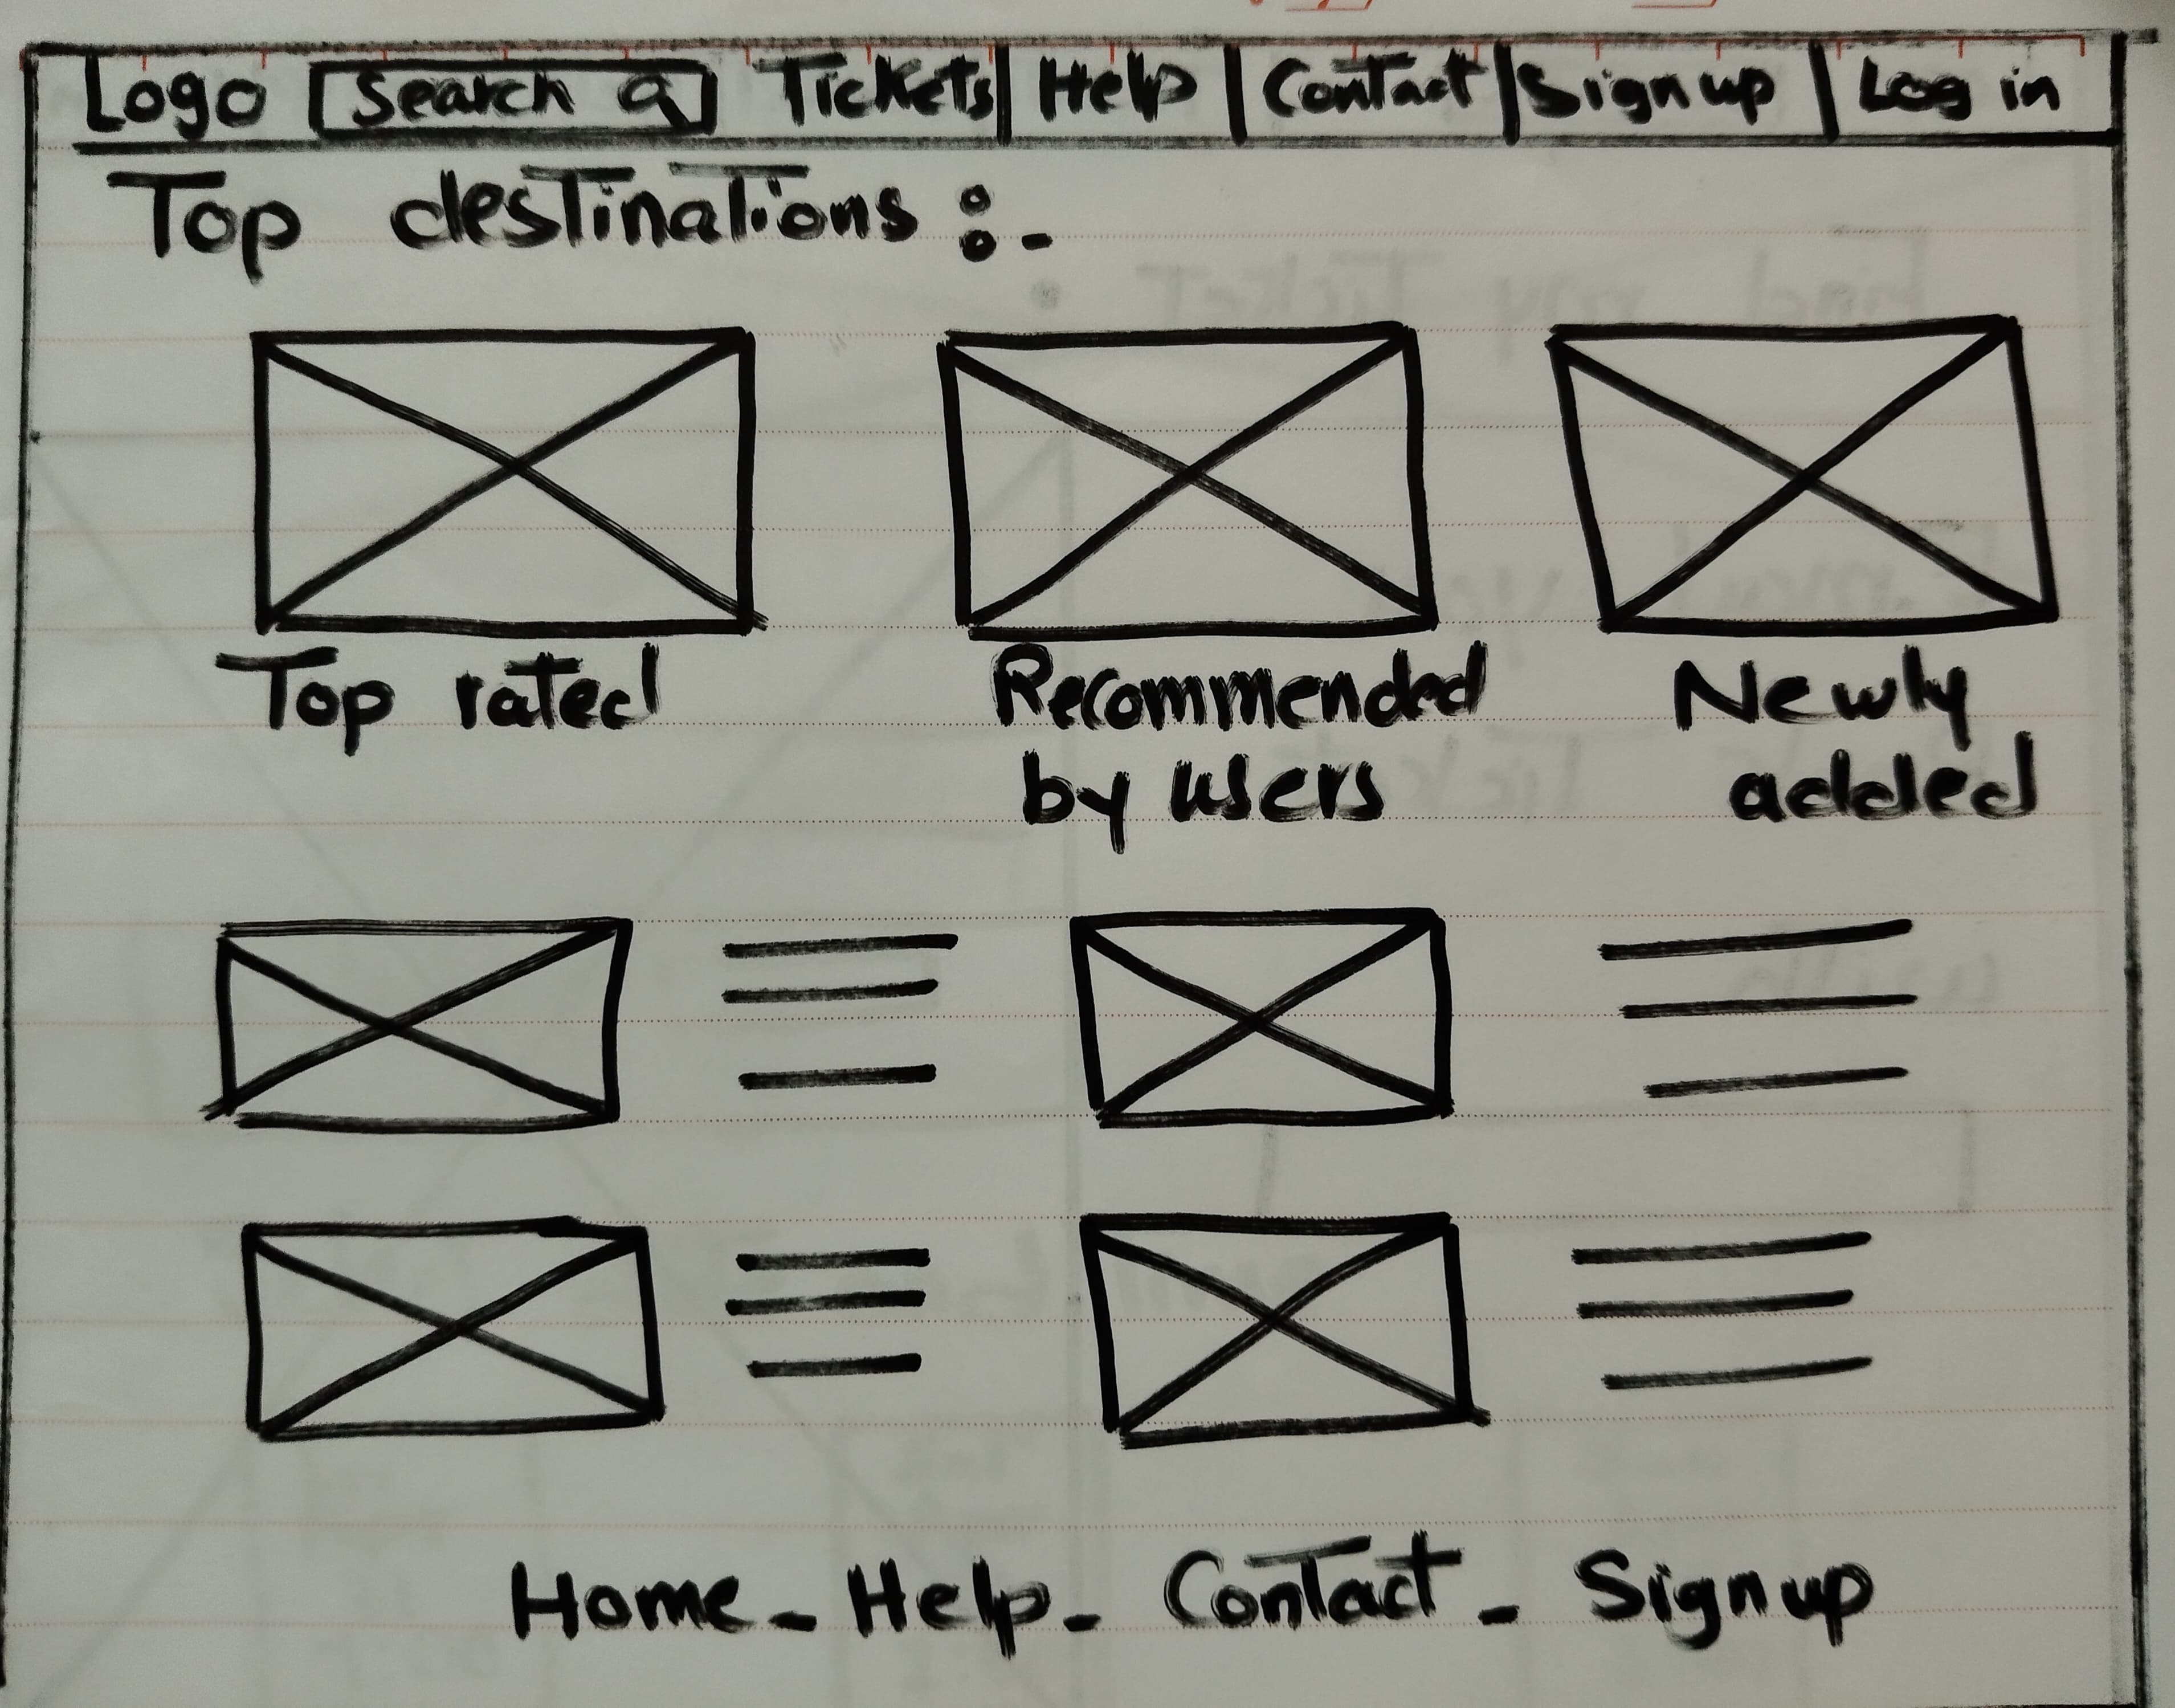 Logo Search Tickets | Help | Contact | Sign up | Log in
Top destinations :-
Top rated
Recommended
by users
Newly
added
Home - Help - Contact - Sign up